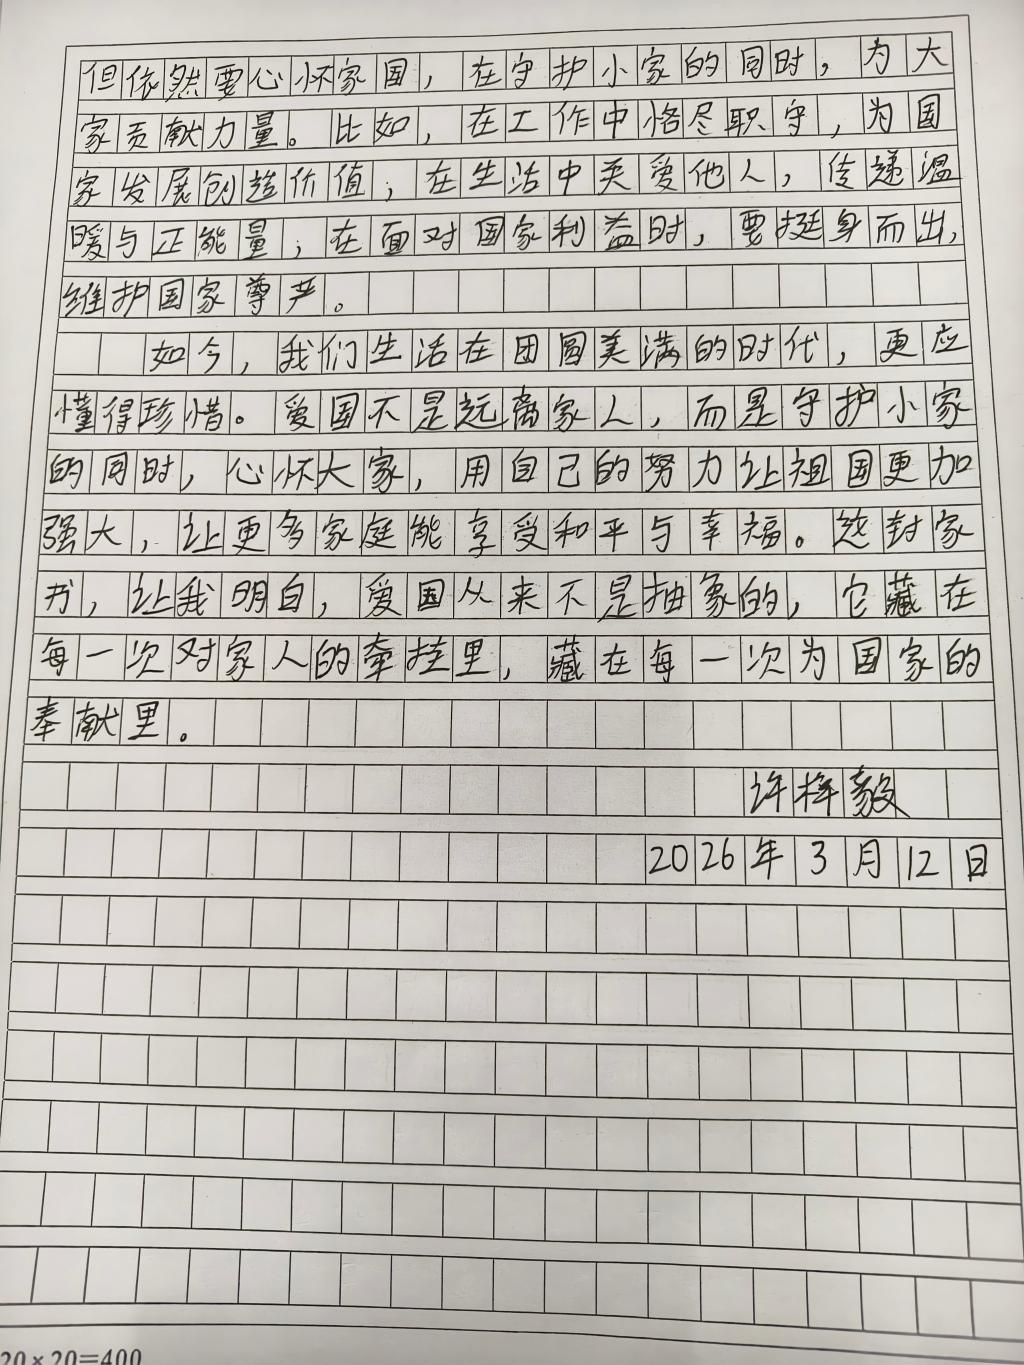 但依然要心怀家国，在守护小家的同时，为大
家贡献力量。比如，在工作中恪尽职守，为国
家发展创造价值；在生活中关爱他人，传递温
暖与正能量；在面对国家利益时，要挺身而出，
维护国家尊严。
如今，我们生活在团圆美满的时代，更应
懂得珍惜。爱国不是远离家人，而是守护小家
的同时，心怀大家，用自己的努力让祖国更加
强大，让更多家庭能享受和平与幸福。这封家
书，让我明白，爱国从来不是抽象的，它藏在
每一次对家人的牵挂里，藏在每一次为国家的
奉献里。
许梓毅
2026年3月12日
20×20=400